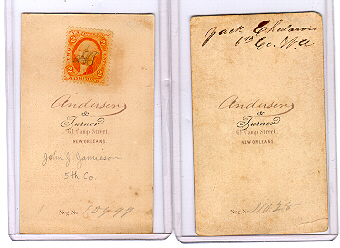 Anderson
&
Turner
61 Camp Street,
NEW ORLEANS
John J. Jamieson
5th Co.
Neg. No.
Jack
Co. W.A
Anderson
&
Turner
61 Camp Street,
NEW ORLEANS
Neg. No. 11028